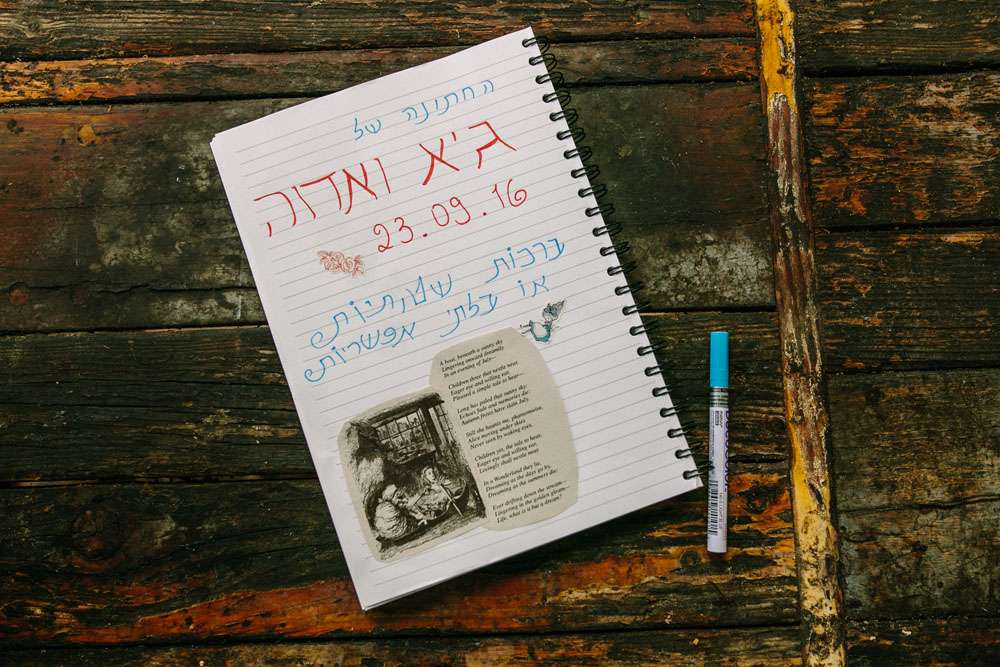 החתונה של
גיא ואדוה
23.09.16
ברכות שטותיות
או בלתי אפשריות
A boat, beneath a sunny sky
Lingering onward dreamily
In an evening of July—
Children three that nestle near,
Eager eye and willing ear,
Pleased a simple tale to hear—
Long has paled that sunny sky:
Echoes fade and memories die:
Autumn frosts have slain July.
Still she haunts me, phantomwise,
Alice moving under skies
Never seen by waking eyes.
Children yet, the tale to hear,
Eager eye and willing ear,
Lovingly shall nestle near.
In a Wonderland they lie,
Dreaming as the days go by,
Dreaming as the summers die:
Ever drifting down the stream—
Lingering in the golden gleam—
Life, what is it but a dream?